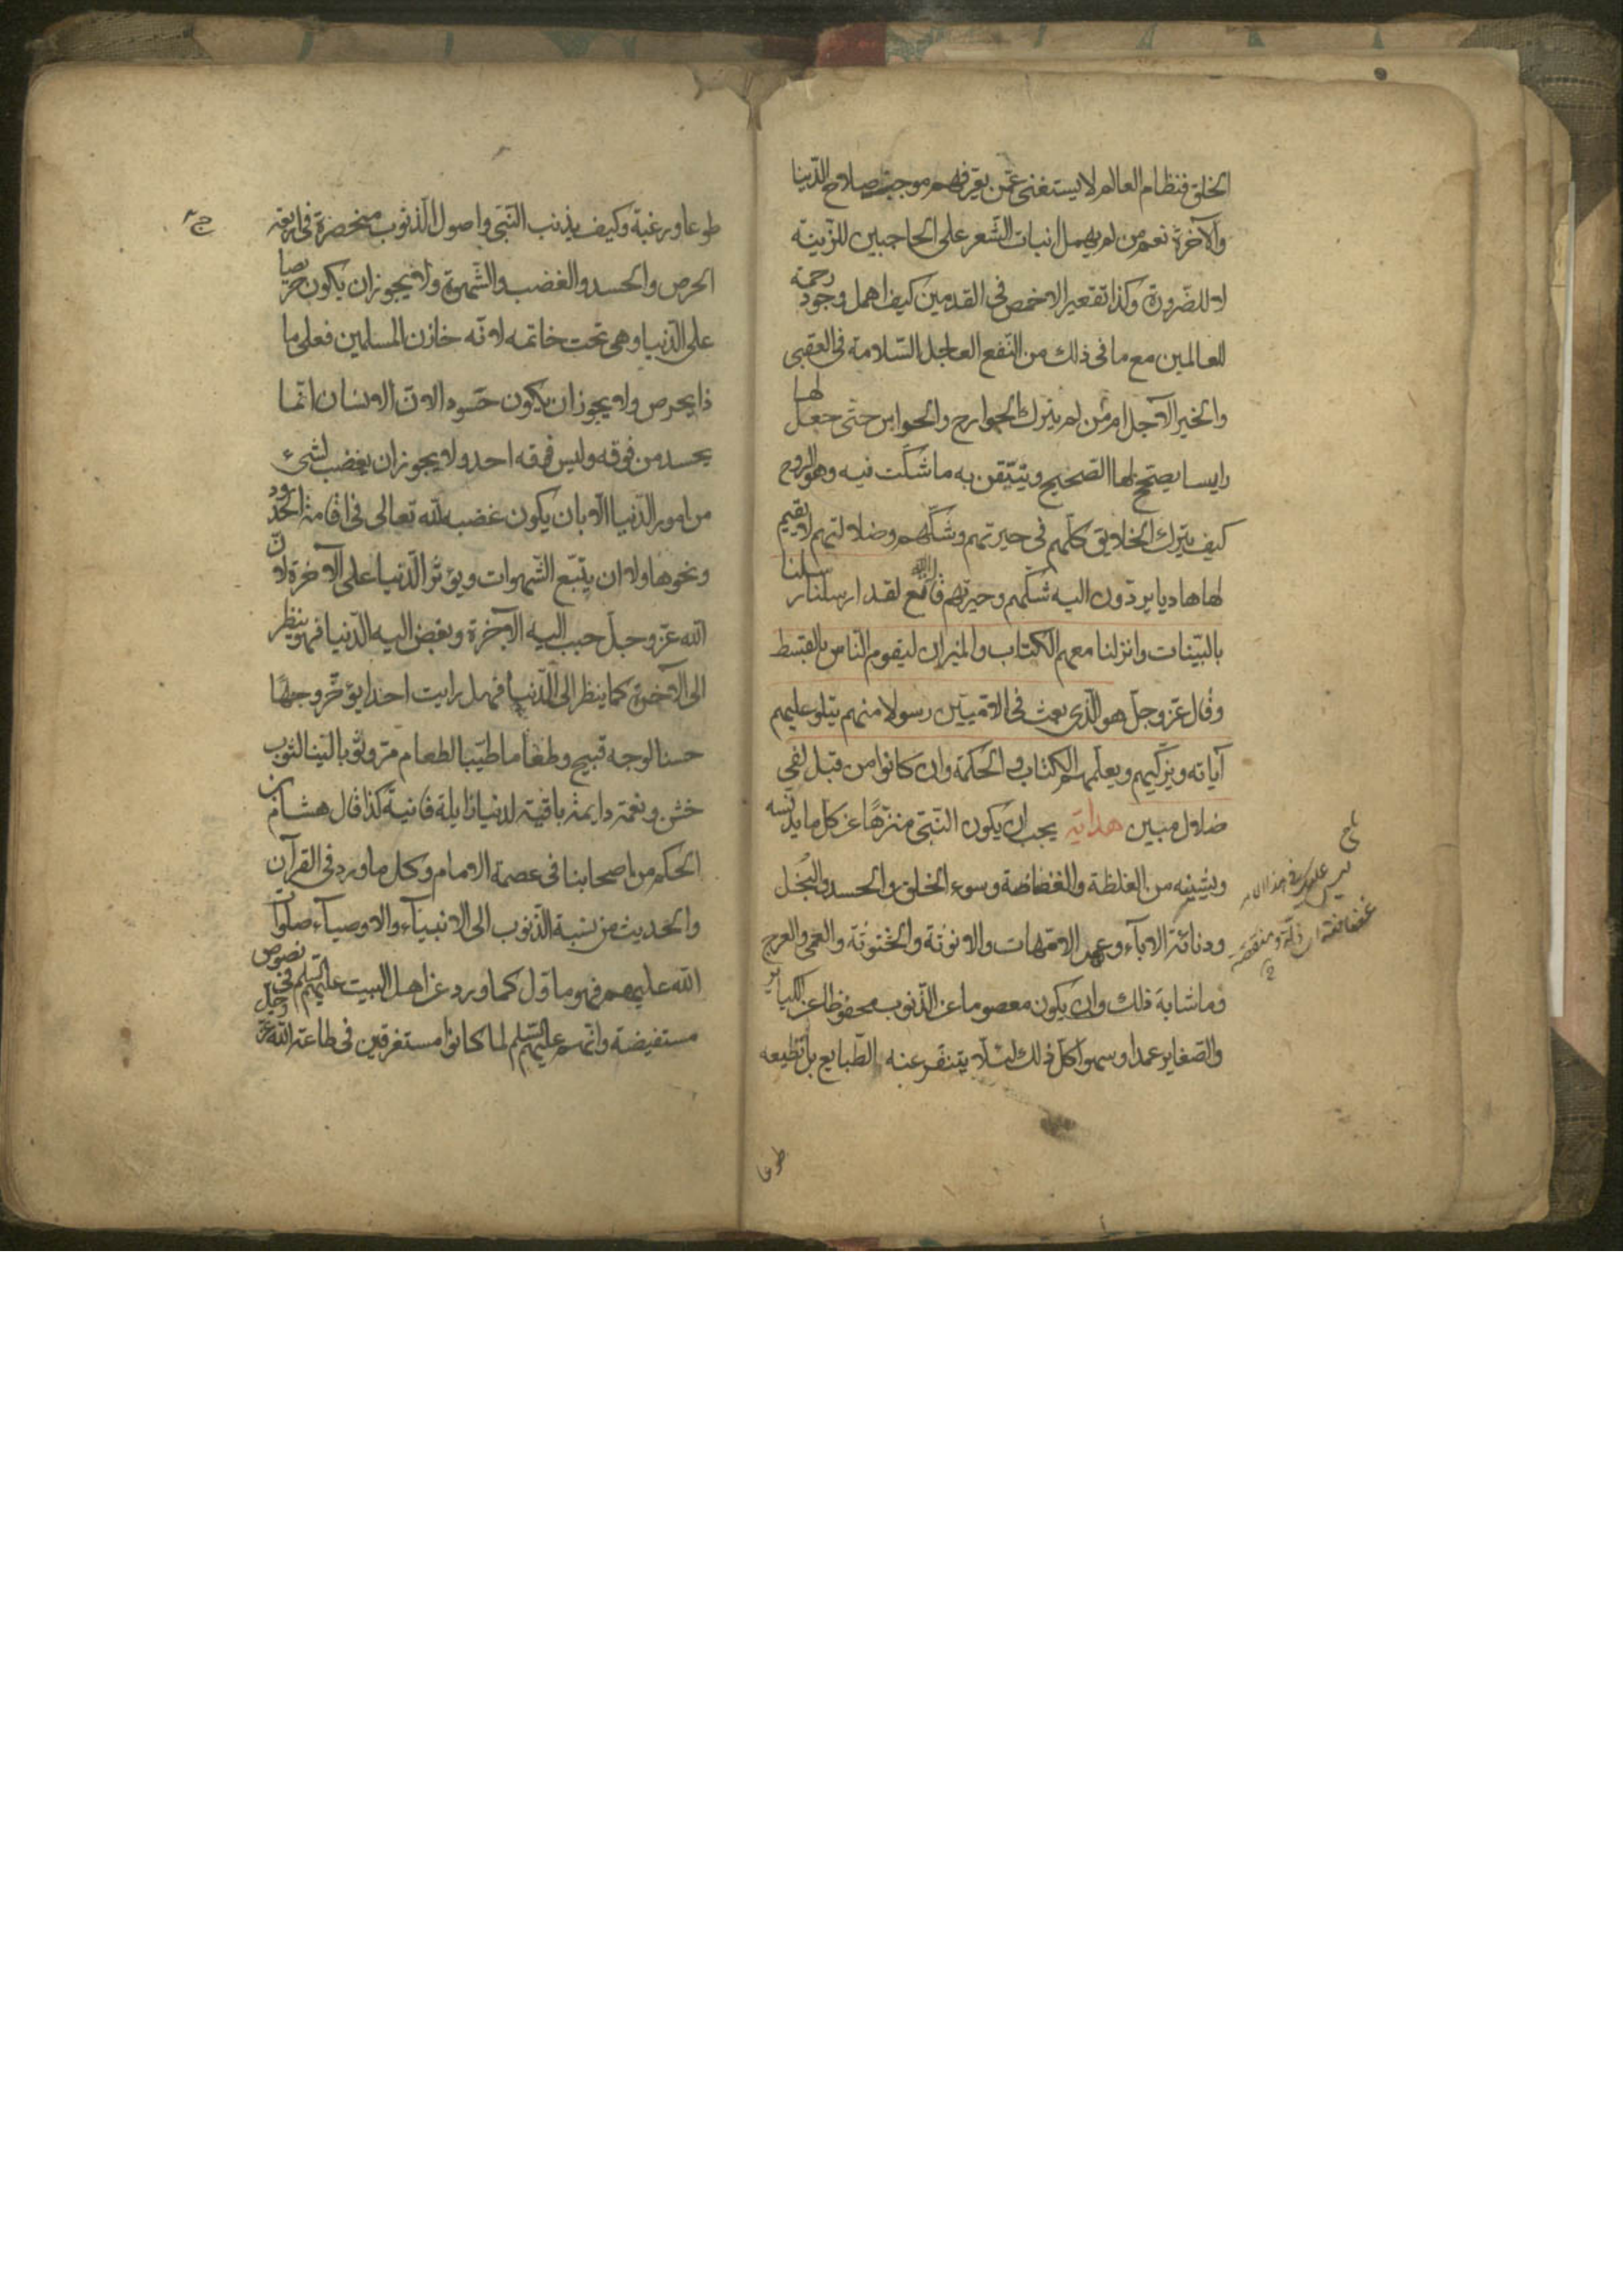 الخلق فنظام العالم لا يستغنى عمّن يعرفهم موجب صلاح الدّنيا
والآخرة نعم من لم يهمل انبات الشّعر على الحاجبين للزّينة
لا للضّرورة وكذا تقعير الاخمص فى القدمين كيف اهمل وجود رحمة
للعالمين مع ما فى ذلك من النّفع العاجل السّلامة فى العقبى
والخير الآجل ام مَن لم يترك الجوارح والحواس حتّى جعل لها
رايسا يصحّح لها الصّحيح ويتيّقن به ما شكّت فيه وهو الروح
كيف يترك الخلايق كلّهم فى حيرتهم وشكّهم وضلالتهم لا يقيم
لها هاديا يردّون اليه شكّهم وحيرتهم قال الله تع لقد ارسلنا رسلنا
بالبيّنات وانزلنا معهم الكتاب والميزان ليقوم النّاس بالقسط
وقال عزّ وجلّ هو الّذى بعث فى الامّيّين رسولا منهم يتلو عليهم
آياته ويزكّيهم ويعلّمهم الكتاب والحكمة وان كانوا من قبل لفى
ضلال مبين هداية يجب ان يكون النّبىّ منزّهًا عن كل ما يدنّسه
ويشينه من الغلظة والفظاظة وسوء الخلق والحسد والبُخل
ودنائة الاباء وعهر الامّهات والانوثة والخنوثة والعمى والعرج
وما شابه ذلك وان يكون معصوما عن الذّنوب محفوظا عن الكباير
والصّغاير عمدا وسهوا كلّ ذلك لئلّا يتنفّر عنه الطّبايع بل تطيعه
طوعا
طوعا ورغبة وكيف يذنب النّبى واصول الذّنوب منحصرة فى اربعة
الحرص والحسد والغضب والشّهوة ولا يجوز ان يكون حريصا
على الدّنيا وهى تحت خاتمه لانّه خازن المسلمين فعلى ما
ذا يحرص ولا يجوز ان يكون حَسودا لانّ الانسان انّما
يحسد من فوقه وليس فوقه احد ولا يجوز ان يغضب لشىء
من امور الدّنيا الا بان يكون غضبه لله تعالى فى اقامة الحدود
ونحوها ولا ان يتبّع الشّهوات ويؤثر الدّنيا على الآخرة لانّ
الله عزّ وجلّ حبب اليه الآخرة وبغض اليه الدّنيا فهو ينظر
الى الآخرة كما ينظر الى الدّنيا فهل رايت احدا يؤخّر وجهًا
حسنا لوجه قبيح وطعاما طيّبا لطعام مرّ وثوبا ليّنا لثوب
خشن ونعمة دايمة باقية لدنيا زايلة فانية كذا قال هشام بن
الحكم من اصحابنا فى عصمة الامام وكل ما ورد فى القرآن
والحديث من نسبة الذّنوب الى الانبياء والاوصياء صلوات
الله عليهم فهو ماوّل كما ورد عن اهل البيت عليهم السّلم فى نصوص
مستفيضة وانّهم عليهم السّلم لما كانوا مستغرقين فى طاعة الله عزّ وجلّ